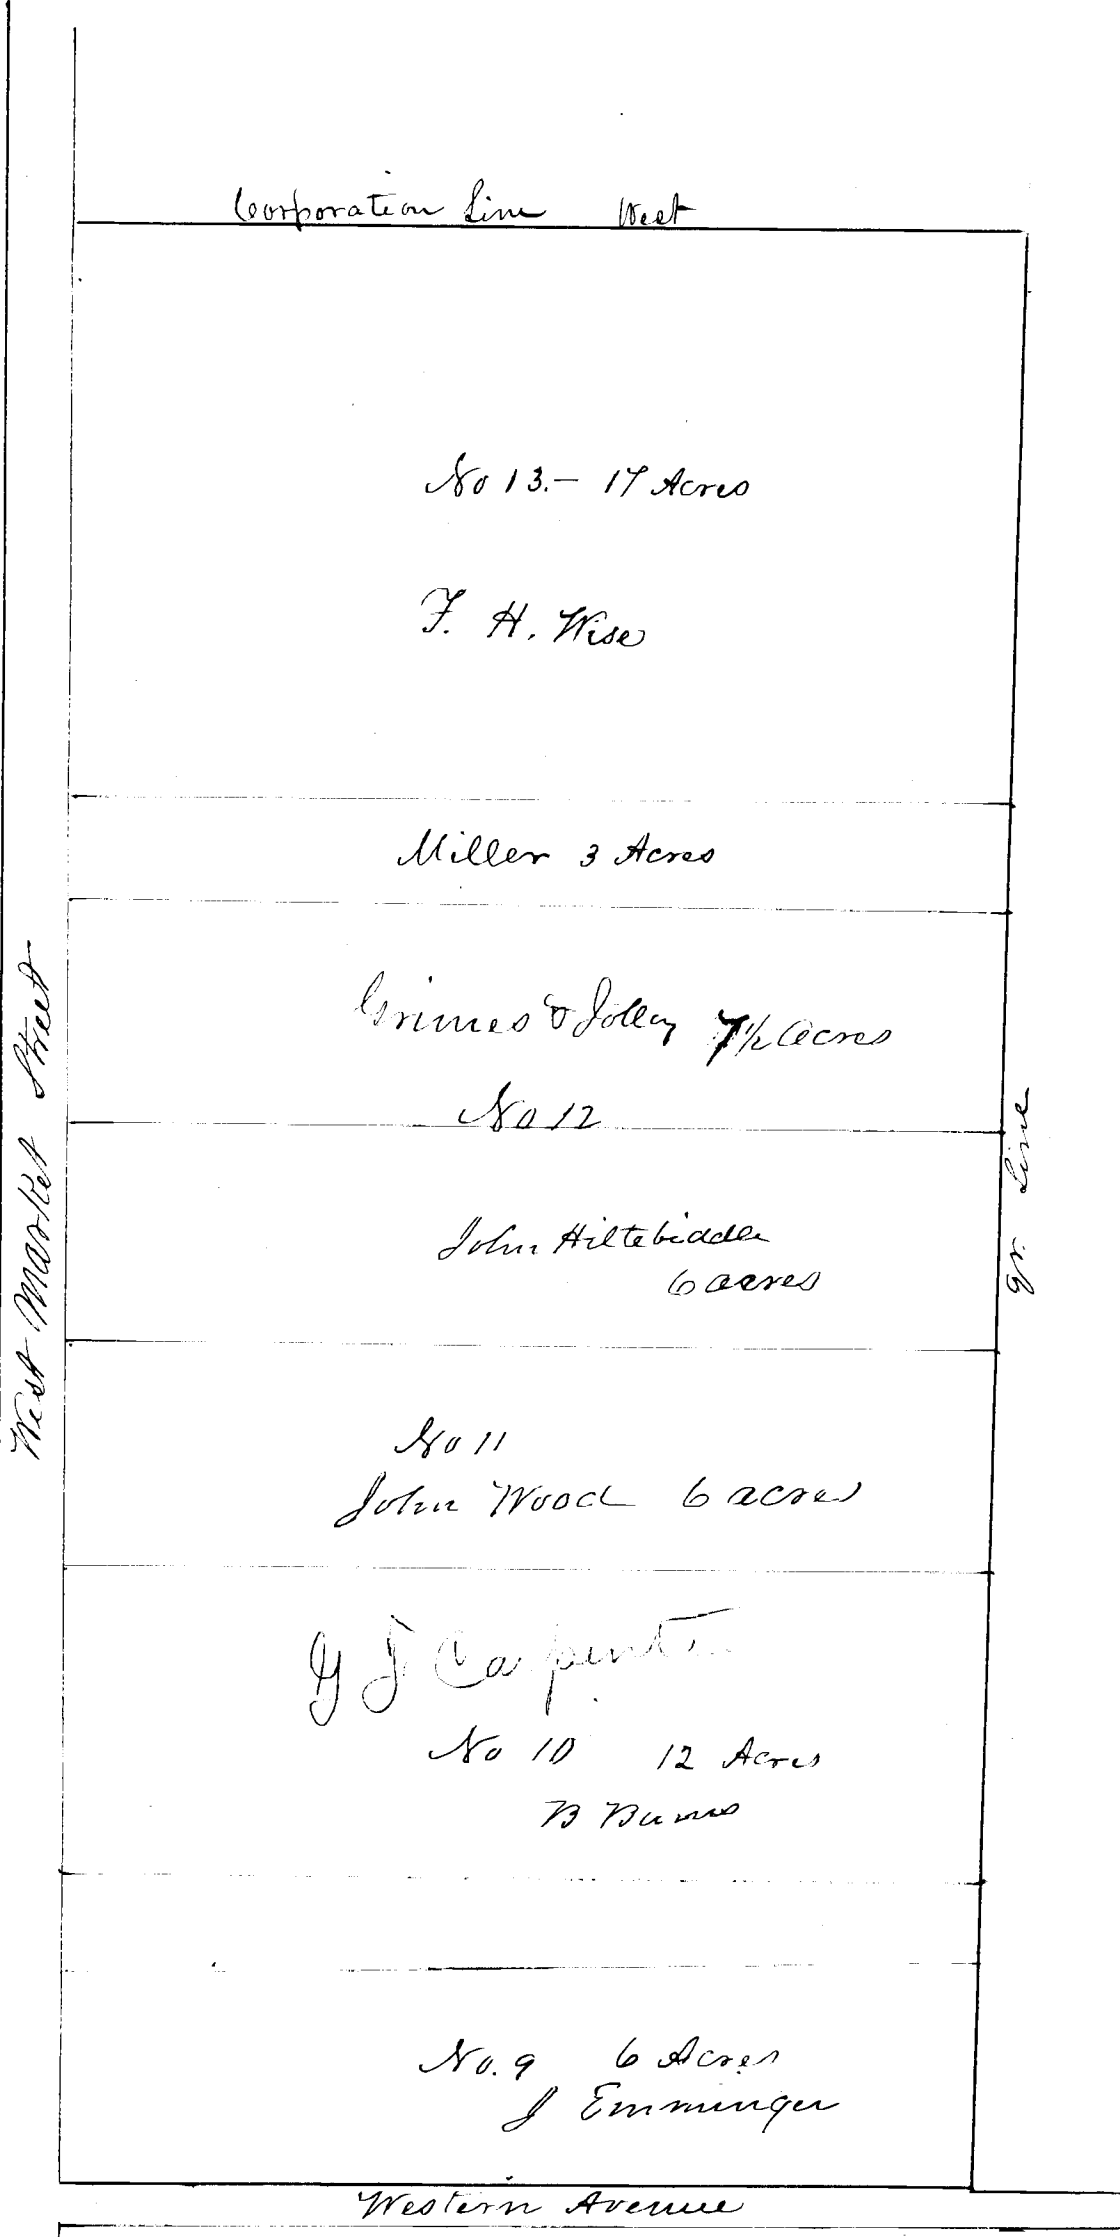 Corporation Line West
No 13.- 17 Acres
F. H. Wise
Miller 3 Acres
Grimes & Jolley 7½ acres
No 12
John Hiltebidde
6 acres
No 11
John Wood 6 acres
G J Carpenter
No 10 12 Acres
B Burns
No. 9 6 Acres
J Emminger
Western Avenue
West Market Street
gr. Line